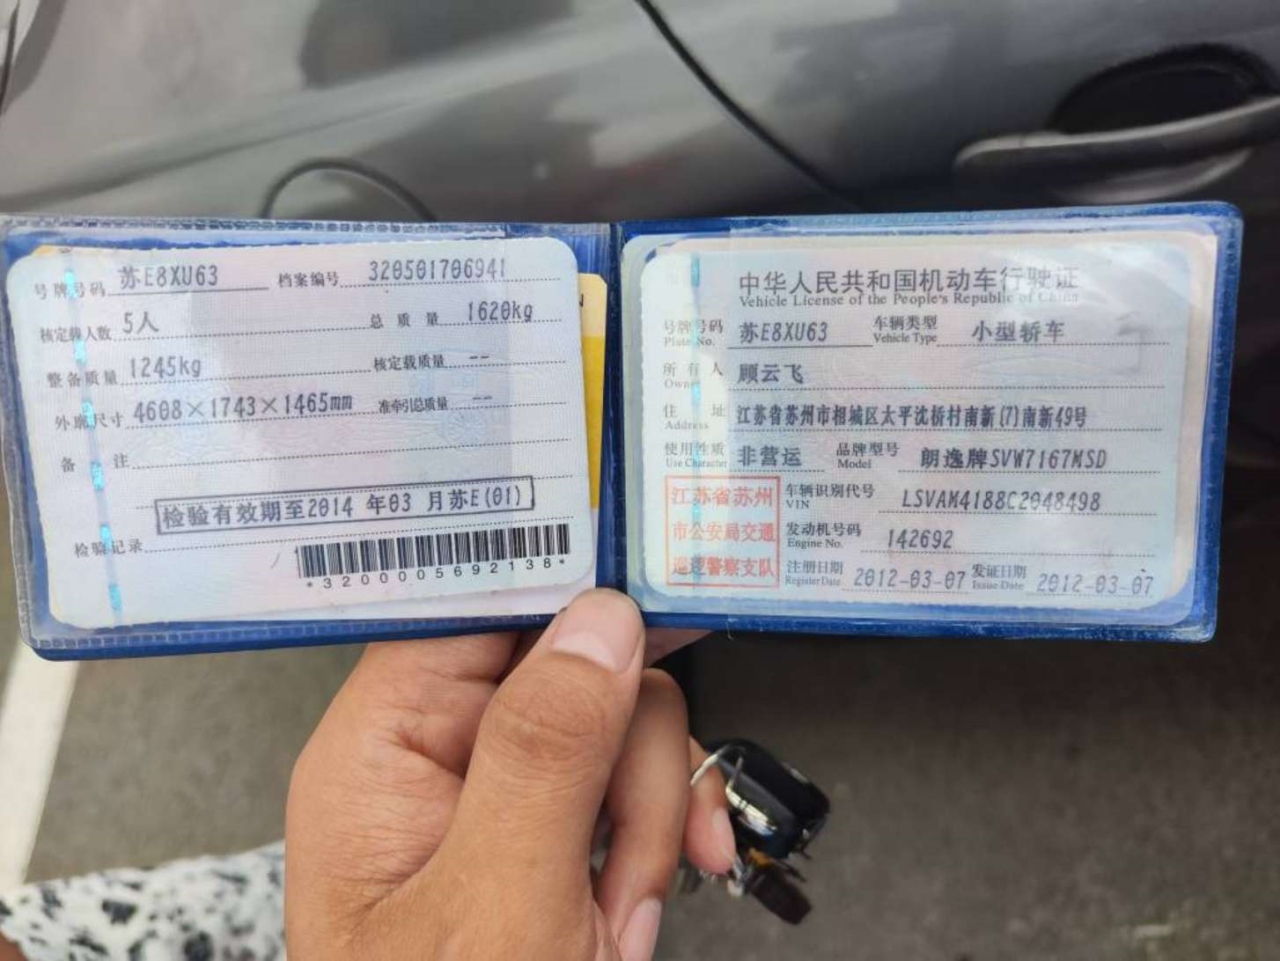 号牌号码 苏E8XU63 档案编号 320501706941
核定载人数 5人 总质量 1620kg
整备质量 1245kg 核定载质量 --
外廓尺寸 4608×1743×1465mm 准牵引总质量 --
备注
检验有效期至2014年03月苏E(01)
检验记录
*3200005692138*
中华人民共和国机动车行驶证
Vehicle License of the People's Republic of China
号牌号码 苏E8XU63 车辆类型 小型轿车
Plate No. Vehicle Type
所有人 顾云飞
Owner
住址 江苏省苏州市相城区太平沈桥村南新(7)南新49号
Address
使用性质 非营运 品牌型号 朗逸牌SVW7167MSD
Use Character Model
江苏省苏州
市公安局交通
巡逻警察支队
车辆识别代号 LSVAM4188C2048498
VIN
发动机号码 142692
Engine No.
注册日期 2012-03-07 发证日期 2012-03-07
Register Date Issue Date